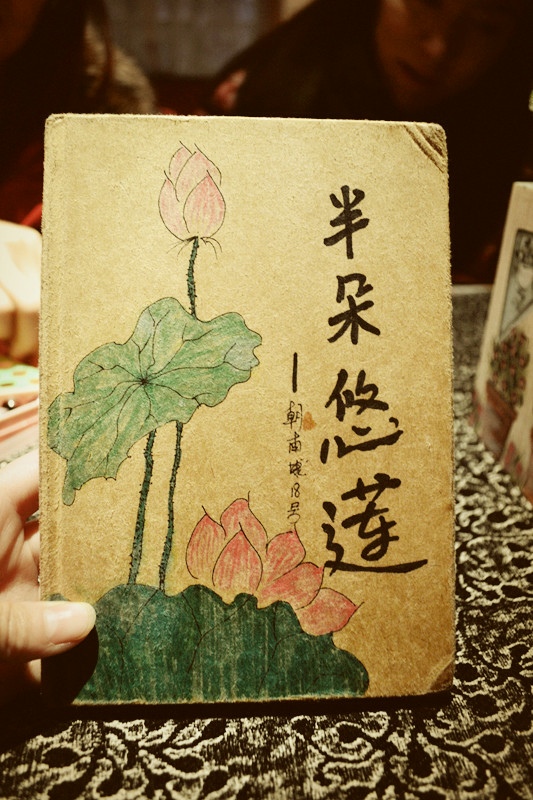 半朵悠莲
—朝南18号